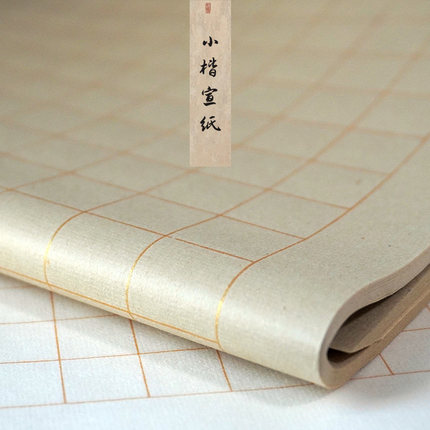 小楷宣纸